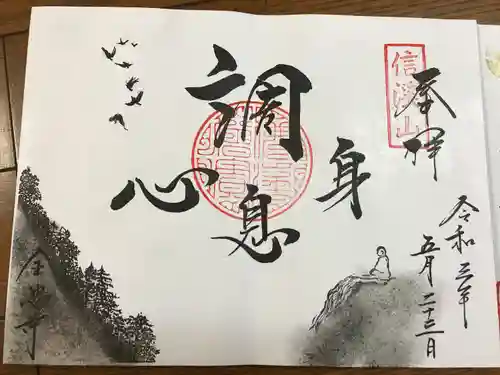 信濃山
奉拝
令和三年
五月二十三日
調
身
息
心